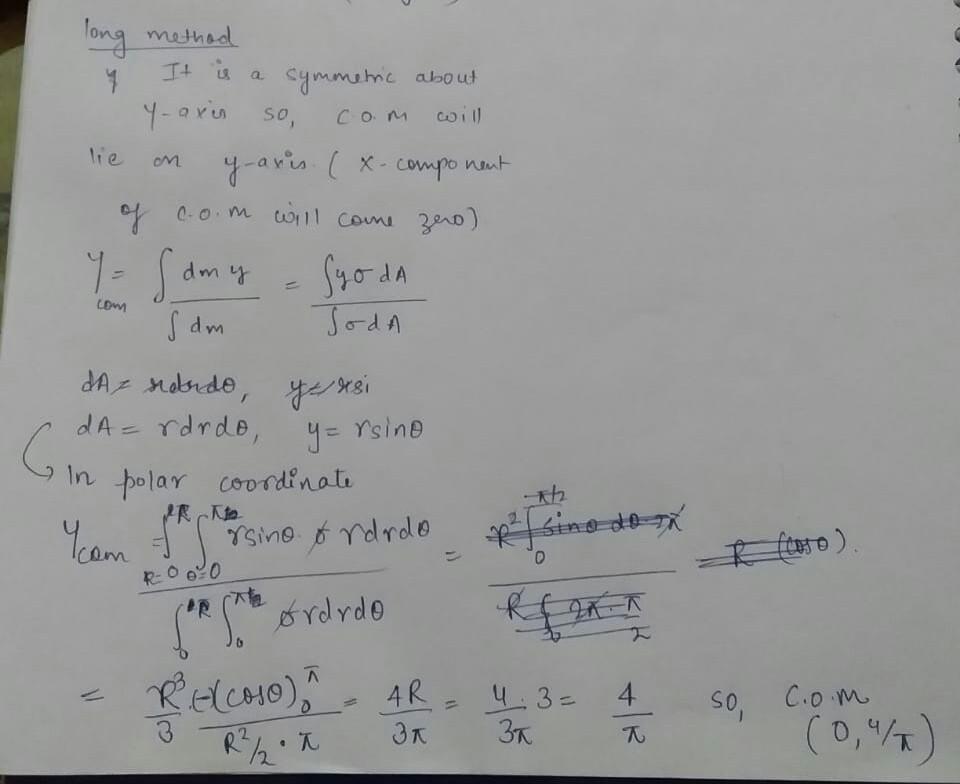 long method
y It is a symmetric about
y-axis so, C.O.M will
lie on y-axis. ( x-component
of C.O.M will come zero)
Y com = ∫ dm y / ∫ dm = ∫ y σ dA / ∫ σ dA
dA = rdrdθ, y = rsi
dA = rdrdθ, y = rsinθ
In polar coordinate
Y com = ∫ R=0 R ∫ θ=0 π rsinθ σ rdrdθ / ∫ 0 R ∫ 0 π σ rdrdθ = R² ∫ 0 π/2 sinθ dθ = R (cosθ).
= R³/3 (-(cosθ) 0 π / R²/2 · π = 4R/3π = 4/3π · 3 = 4/π so, C.O.M
(0, 4/π)